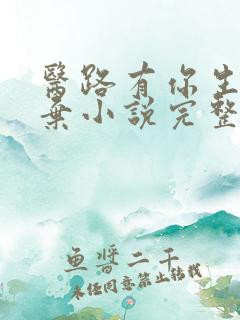 醫路有你生
棄小說完整
魚醬二千
未经同意禁止转载